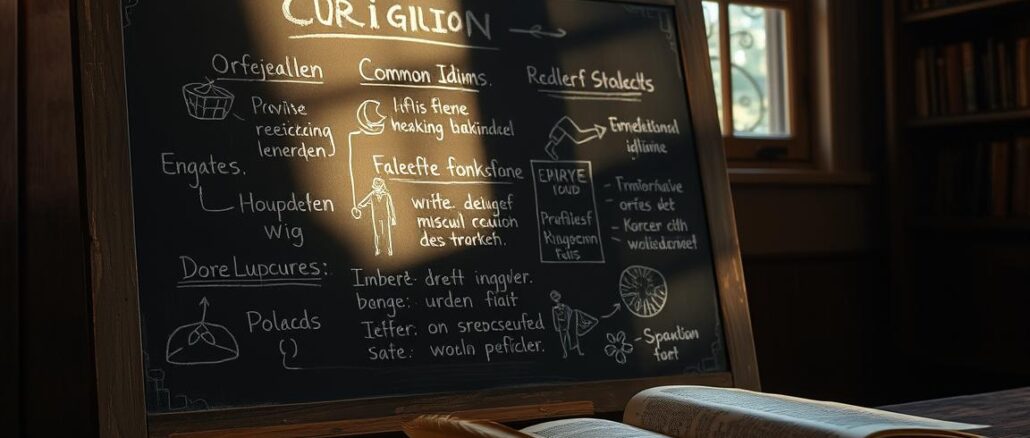 CURIGILION
Orfejeallen
Prwise
reeicczing
lenerden)
Engates.
Houpdeten
Wig
Dore Lupcures:
Polacds
Common Idims.
lifls flene
heaking bakindcel
Faleefte fonksfone
wifte. delugef
miscul caution
des trorkeh.
Imbere. dreft ingwer.
bange: urden fiait
Ieffer: on srepcseufed
sate: wotln peficler.
Redlerf Stalects
idliwine
EPIRYE
Proflies
Ringpenn
Falls
- Tmiorhaive
orfes det
- Korcer clth
Spautiun
fort